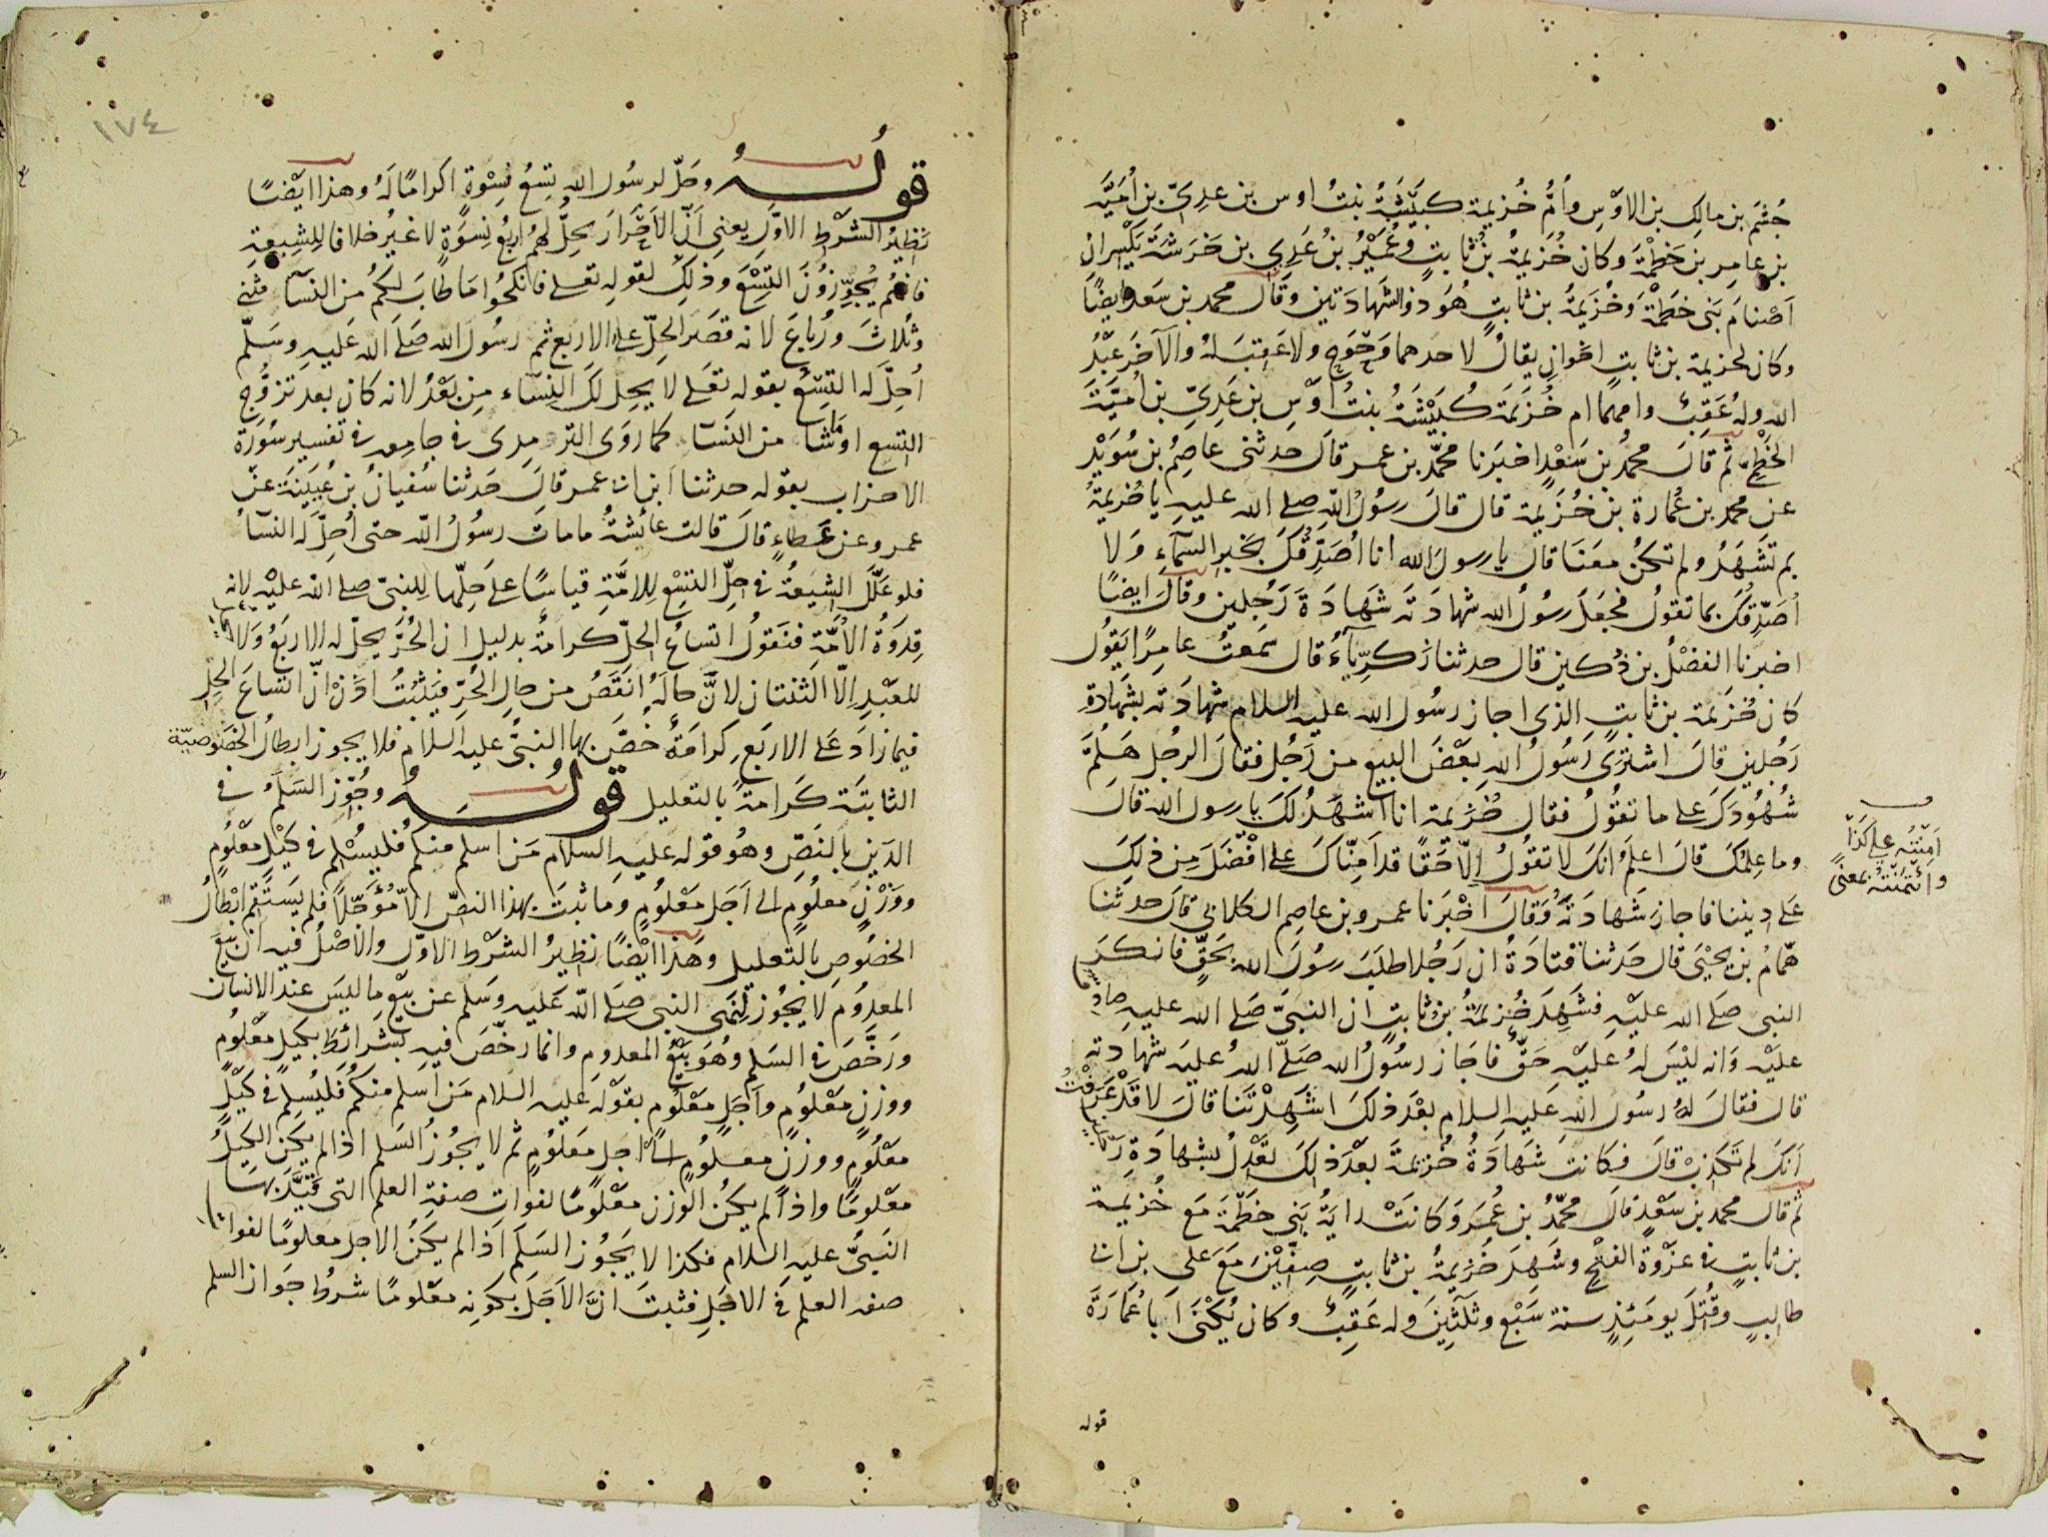 جُشَمَ بن مالِكِ بن الاوْسِ وأُمُّ خُزيمة كبَيْشَةُ بنتُ اوس بن عدِىّ بن أُمَيَّة
بن عامِر بن خَطْمَة وكان خُزيمةُ بنُ ثابتٍ وعُمَيْرُ بنُ عَدِىِ بن خَرَشَة يَكْسِران
اَصْنامَ بَنى خطمَةَ وخُزَيمةُ بن ثابتٍ هُوَ ذو الشهادَتين وقال محمد بن سَعد ايضًا
وكان لخزيمة بن ثابتٍ اخوانِ يقالُ لاحدهما وَحْوَح ولا عَقِبَ لهُ والآخَر عبْدُ
الله ولهُ عَقِبٌ وامهما ام خُزَيمَة كُبَيْشَةُ بنتُ اَوْسِ بن عَدِىِّ بن اُميَّة
الخَطْمِىّ ثم قالَ محمدُ بن سَعْدٍ اخبَرَنا محمّد بن عمر قالَ حدثنى عاصِمُ بن سُوَيْد
عن محمد بن عُمارة بن خُزَيمة قال قالَ رسُولُ اللّٰهِ صلى الله عليهِ يا خُزيمةُ
بم تَشهَدُ ولم تكنْ معَنا قال يا رسولَ الله انا اُصَدِّقُكَ بخبر السّماءِ وَلا
اُصَدِّقُكَ بما تقولُ فجعَلَ رسُولُ الله شهادَتَه شَهادَةَ رَجُلين وقالَ ايضًا
اخبرنا الفضْلُ بن دُكينٍ قال حدثنا زكرِيّاءُ قال سَمعتُ عامِرًا يَقُول
كان خُزَيمة بن ثابتٍ الذى اجاز رسُول الله عليه السلام شهادَته بشَهادة
رَجُلين قالَ اشترَى رَسُولُ اللهِ بعْضَ البيع من رَجُل فقالَ الرجُل هَلُمَّ
شُهُودَكَ على ما تقُولُ فقال خُزيمة انا اشهَدُ لكَ يا رسول الله قالَ
وما عِلمُكَ قالَ اعلَمُ انكَ لا تقُولُ الّا حَقًا قد امِنّاكَ على افْضَلَ مِن ذلِكَ
عَلى دِيننا فاجازَ شَهادَتَهُ وَقالَ اخْبَرنا عمرو بن عاصِم الكلابى قالَ حدثنا
همّامُ بن يحيَى قال حدثنا قتادَةُ ان رَجُلا طلبَ رسُولَ الله بحَقٍّ فانكرَ
النبى صَلى الله عليْهِ فشَهِدَ خُزيمةُ بنُ ثابتٍ ان النبىَّ صَلى الله عليهِ صادِقٌ
عليْهِ وَانه ليْسَ لهُ عليْهِ حَقٌّ فاجَاز رسُولُ الله صَلىّ اللهُ عليه شهادتَه
قال فقالَ لهُ رسُول الله عَليهِ السلام بعْدَ ذلكَ اشَهِدْتَنا قالَ لا قَدْ عَرَفْتُ
اَنكَ لم تَكذِبْ قالَ فكانت شَهَادَةُ خُزيمَةَ بعدَ ذلكَ تعْدِلُ بشهادَةِ رَجُلين
ثم قال محمد بن سَعْدٍ قالَ محمّدُ بن عُمرَ وكانَتْ رايةُ بَنى خَطمَةَ مَع خُزيمة
بن ثابتٍ فى غزْوَةِ الفَتْحِ وشَهِدَ خُزيمةُ بن ثابتٍ صِفِّيْنَ مَعَ على بن ابى
طالبٍ وقُتِلَ يومَئِذٍ سنة سَبْع وثَلثِينَ وله عَقِبٌ وكان يُكْنَى اَبا عُمَارَةَ
امِنْتُه على كذا
وائْتَمَنْتُه بمعنًى
قوله
١٧٤
قولُهُ وحَلَّ لرسُول الله تِسْعُ نِسْوَةٍ اكرامًا لَهُ وهذا ايْضًا
نَظِيْرُ الشَرْط الاوّلِ يعنِى اَنّ الاَحْرَارَ يحِلُّ لهُم اربَعُ نِسوَةٍ لا غيرُ خلافا للشِيعةِ
فانهُم يُجوِّزُونَ التِسْعَ وذلِكَ لقوله تعلى فانكحُوا مَا طابَ لكمُ من النسَآ مثنى
وثُلاثَ ورُباعَ لانه قصَر الحِلّ على الاربع ثم رسُول الله صَلى الله عَليهِ وسَلّم
اُحِلَّ له التِسْعُ بقوله تعَلى لا يحِل لكَ النِسَاء مِن بَعْدُ لانه كان بعد تزوُّج
التسع او ما شا من النسَآ كما روَى الترمذِى فى جامعه فى تفسير سُورَة
الاحزاب بقوله حدثنا ابن ابى عمر قالَ حَدثنا سُفيانُ بن عُيَينَة عن
عمرو عن عَطاءٍ قالَ قالت عائشةُ ما ماتَ رسُولُ الله حتى اُحِلَّ له النسَاُ
فلو عَلَّلَ الشِيعَةُ فى حِلِّ التِسْعِ لِلامَّةِ قياسًا عَلى حَلِّها لِلنبىّ صلى الله عليْه لانه
قِدوَةُ الاُمَّة فنَقولُ اتساعُ الحِلّ كرامةٌ بدليل ان الحُرَّ يحلّ له الاربَعُ وَلا يحل
للعَبْدِ الّا الثنتان لانَّ حالَهُ انقَصُ من حالِ الحُرِّ فيَثْبُتُ اذَنْ انّ اتّساعَ الحِل
فيما زادَ عَلى الاربَعِ كرامَةٌ خُصَّ بها النبىُّ عليه السلام فلا يجوز ابطالُ الخصُوصيّة
الثابتَة كَرامَةً بالتعليل قولُهُ وجُوّز السَلَمُ فى
الدَين بالنَصّ وهُو قوله عليهِ السلام مَن اسلم منكمُ فليُسْلِم فى كَيْلٍ معلُومٍ
ووَزْنٍ معلُومٍ الى اَجَل مَعْلُومٍ وَما ثبتَ بهذا النصّ الاّ مُؤَجّلًا فلم يَستَقِم ابْطالُ
الخصُوصِ بالتعليل وهَذا ايْضًا نظِيرُ الشرْط الاوّل والاَصْلُ فيه ان بَيْعَ
المعدوُم لا يجُوز لِنَهى النبى صَلى الله عَليه وسَلم عن بَيْع ما ليسَ عند الانسان
ورَخَّصَ فى السَلم وهُوَ بَيْعُ المعدوم وانما رخّصَ فيهِ بشرائِطِ بكيلٍ معْلُومٍ
ووزنٍ معْلوُمٍ واَجَلٍ مَعْلُومٍ بقوْله عَليه السلام مَن اَسلم منكمُ فليُسلِم فى كَيْلٍ
معْلُومٍ ووزنٍ معلومٍ الى اجلٍ مَعلومٍ ثم لا يجُوزُ السَلم اذا لم يكن الكيلُ
معْلومًا واذا لم يكنُ الوزن معْلومًا لفوات صفةِ العلم التى قيَّدَ بها
النَبىُّ عليه السلام فكذا لا يَجُوز السَلَم اذا لم يكنُ الاجل معلومًا لفوات
صفه العلم فى الاجَلِ فثبتَ انَّ الاَجَل بكونِه معْلومًا شرطُ جَواز السلم